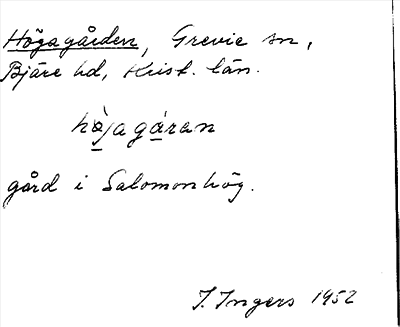 Högagården, Grevie sn,
Bjäre hd, Krist. län.
hö̀jagáran
gård i Salomonhög.
I. Ingers 1952